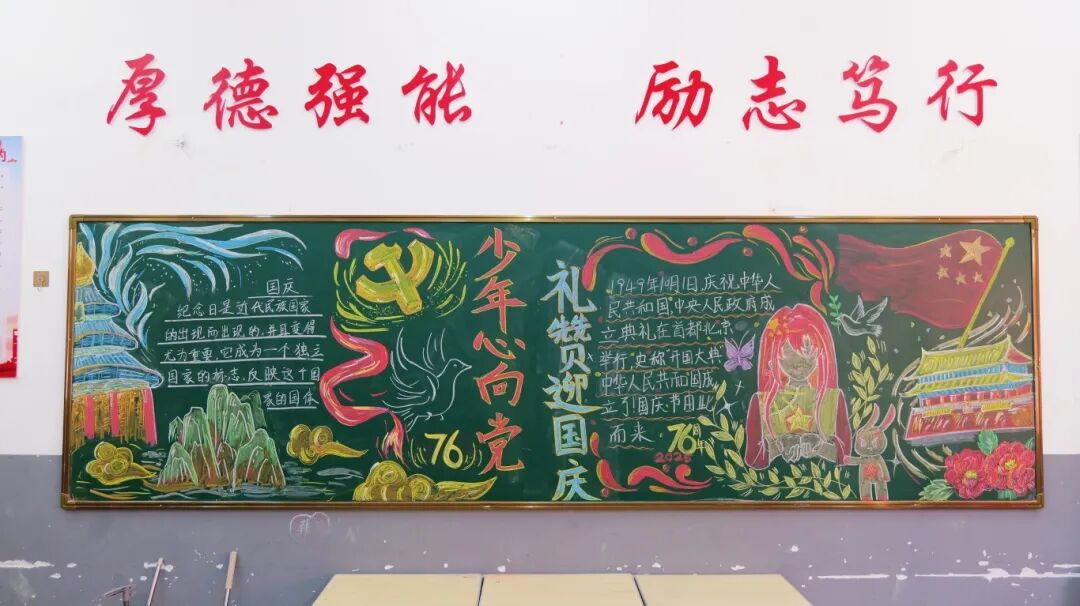 厚德强能 励志笃行
国庆
纪念日是近代民族国家
的出现而出现的,并且变得
尤为重要。它成为一个独立
国家的标志,反映这个国
家的国体
76
少年心向党
礼赞迎国庆
1949年10月1日,庆祝中华人
民共和国,中央人民政府成
立典礼在首都北京
举行,史称"开国大典"
中华人民共和国成
立了!国庆节由此
而来
76周年
为